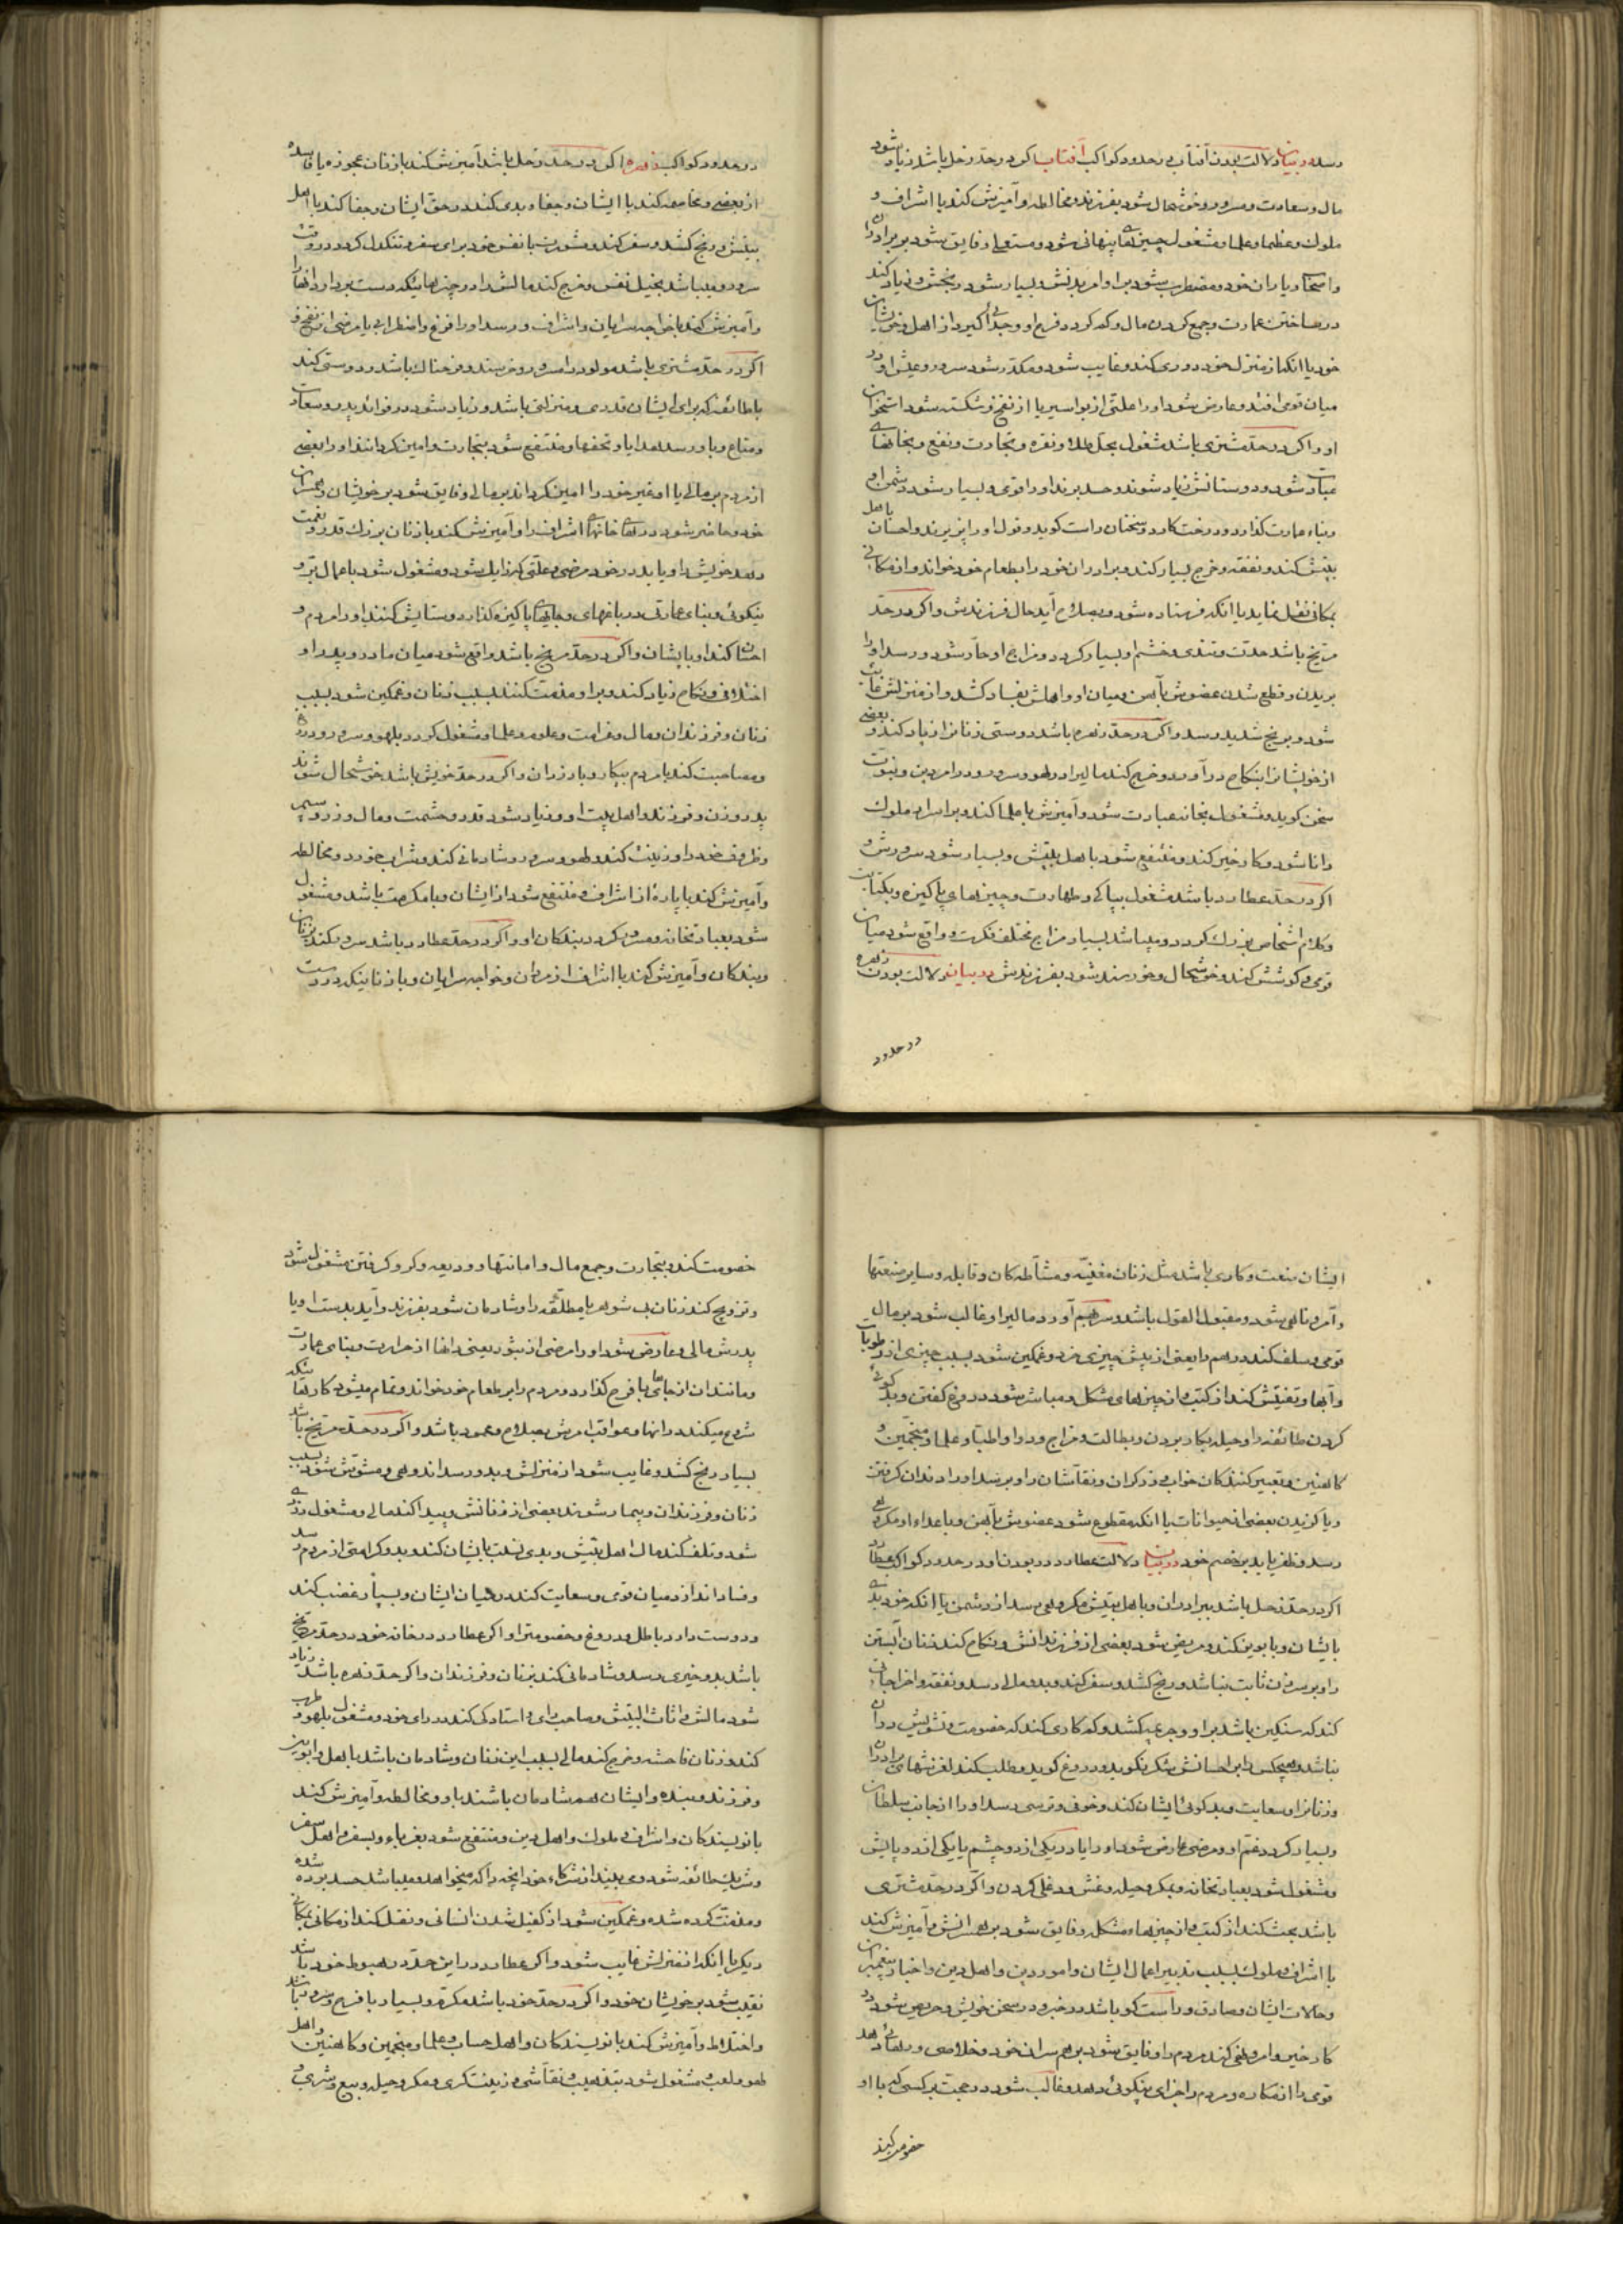 رسد در بیان دلالت بودن آفتاب در حدود کواکب آفتاب اگر در حد زحل باشد زیاد شود
مال و سعادت و سرور و خوشحال شود بفرزند و مخالطه و آمیزش کند با اشراف و
ملوک و عظما و علما و مشغول چیزهای پنهانی شود و مستولی و فایق شود بر برادران
و اصحاب و یاران خود و مضطرب شود برا و امر بدنش و بسیار شود رنجش و زیاد کند
در ساختن عمارت و جمع کردن مال و که کردد فرح او و جدائی گیرد از اهل و خویشان
خود یا آنکه از منزل خود دوری کند و غایب شود و مکدر شود سرور و عیش او در
میان قومی افتد و عارض شود او را علتی از بواسیر یا از نقرس و شکسته شود استخوان
او و اگر در حد مشتری باشد مشغول بحل طلا و نقره و تجارت و نفع و بخانهای
عبادت شود و دوستانش زیاد شوند و حسد برند او را قومی و بسیار شود دشمن او و
وبناء عمارت گذارد و درخت کارد و سخنان راست گوید و قول او را پذیرند و احسان باهل
بیتش کند و نفقه و خرج بسیار کند و برادران خود را بطعام خود خواند و از مکانی
بمکانی نقل نماید یا آنکه فرستاده شود و بصلاح آید حال فرزندش و اگر در حد
مریخ باشد حدت و تندی و خشم او بسیار کردد و مزاج او حار شود و رسد او را
بریدن و قطع شدن عضوش بآهن و میان او و اهلش بفساد کشد و از منزلش غایب
شود و برنج شدید رسد و اگر در حد زهره باشد دوستی زنانرا زیاد کند و بعضی
از خویشانرا بنکاح درآورد و خرج کند مالیرا در لهو و سرور و در امر دین و نبوت
سخن گوید و مشغول بخانه عبادت شود و آمیزش با علما کند و بر اسرار ملوک
دانا شود و کار خیر کند و منتفع شود باهل بیتش و بسیار شود سرورش و
اگر در حد عطارد باشد مشغول بپاکی و طهارت و چیزهای پاکیزه و بکتاب
و کلام اشخاص بزرگ کردد و میباشد بسیار مزاح مختلف فکرت و واقع شود میان
قومی و کوشش کند و خوشحال و خورسند شود بفرزندش در بیان دلالت بودن زهره
در حدود
در حدود کواکب زهره اگر در حد زحل باشد آمیزش کند با زنان عجوزه یا فاسده
از بعضی و مجامعه کند با ایشان و جفا و بدی کند در حق ایشان و جفا کند با اهل
بیتش و رنج کشد و سفر کند و مشورت با نفس خود برای سفر و تنکدل کردد در وقت
سرور و میباشد بخیل نفس و خرج کند مالش را در چیزهائیکه دست بردارد از آنها
و آمیزش کند با خواجه سرایان و اشراف و رسد او را فزع و اضطرابی یا مرضی از نقرس و
اگر در حد مشتری باشد مولود را سرور و خرسند و فرحناک باشد و دوستی کند
با طائفه که برای ایشان قدری و منزلتی باشد و زیاد شود در فوائد پدر و سعادت
و متاع و باو رسد هدایا و تحفها و منتفع شود بتجارت و امین کردانند او را بعضی
از مردم بر مالی یا او غیر خود را امین کرداند بر مالی و فایق شود بر خویشان و همسران
خود و حاضر شود در خانهای اشراف را و آمیزش کند با زنان بزرگ قدر و نعمت
دهد خویش را و یابد در خود مرض و علتی که زایل شود و مشغول شود باعمال بر و
نیکوئی و بنای عمارتی در باغهای و جایهای پاکیزه گذارد و ستایش کنند او را مردم و
احسان کند او بایشان و اگر در حد مریخ باشد واقع شود میان مادر و پدر او
اختلافی و نکاح زیاد کند و برا و مذمت کنند بسبب زنان و غمکین شود بسبب
زنان و فرزندان و مال و غرامت و علوم و علما و مشغول کردد بلهو و سرور و
و مصاحبت کند با مردم بیکار و با دزدان و اگر در حد خویش باشد خوشحال شوند
پدر و زن و فرزند و اهل بیت او و زیاد شود قدر و حشمت و مال و زر و سیم
و ظروف خود را و زینت کند و لهو و سرور و شادمانی کند و شراب خورد و مخالطه
و آمیزش کند با پاره از اشراف و منتفع شود از ایشان و با مکرمت باشد و مشغول
شود بعبادتخانه و مسرور کردد ببندکان او و اگر در حد عطارد باشد سرور کند بزنان
و بندکان و آمیزش کند با اشراف از مردان و خواجه سرایان و با زنانیکه در دست
ایشان صنعت و کاری باشد مثل زنان مغنیه و مشاطه کان و قابله و سایر صنعتها
و آمر و ناهی شود و مقبول القول باشد و بهم آورد مالیرا و غالب شود بر مال
قومی و تلف کند درهم را یعنی از پیش چیزی خرد و غمکین شود بسبب چیزی از رطوبات
و آبها و تفتیش کند از کتب و از چیزهای مشکل و مباشر شود در دروغ گفتن و بد گوئی
کردن طائفه را و حیله بکار بردن و بطالت و مزاح و دوا و اطبا و علما و منجمین و
کاهنین و تعبیر کنندکان خواب و زرگران و نقاشان را و برسد او را دندان گرفتن
و یا گزیدن بعضی از حیوانات یا آنکه مقطوع شود عضوش بآهن و باعداء او مکروهی
رسد و ظفر یابد بر خصم خود در بیان دلالت عطارد در بودن او در حدود کواکب عطارد
اگر در حد زحل باشد ببرادران و باهل بیتش مکروهی رسد از دشمن یا آنکه خود بدی
بایشان و بابوین کند و مریض شود بعضی از فرزندانش و نکاح کند زنان آبستن
را و بر سر زن ثابت نباشد و رنج کشد و سفر کند و بد و ملالی رسد و نفقه و اخراجاتی
کند که سنکین باشد برا و وجر عیب کشد و که کاری کند که خصومت و تشویش در آن
نباشد و هیچکس را بر احسانش شکر نگوید و دروغ گوید و طلب کند لغزشهای برادران
و زنانرا و سعایت و بد گوئی ایشان کند و خوفی و ترسی رسد او را از جانب سلطان
و بسیار کردد غم او و مرضی عارض شود او را یا در یکی از دو چشم یا یکی از دو پایش
و مشغول شود بعبادتخانه و بمکر و حیله و غش و دغلی کردن و اگر در حد مشتری
باشد بحث کند از کتب و از چیزهای مشکل و فایق شود بر همسرانش و آمیزش کند
با اشراف و ملوک بسبب تدبیر اعمال ایشان و امور دین و اهل دین و اخبار پیغمبران
و حالات ایشان و صادق و راست گو باشد در خبر و در سخن خویش و حریص شود در
کار خیر و امر و نهی کند مردم را و فایق شود بر همسران خود و خلاصی و رهائی دهد
قومی را از مکاره و مردم را جزای بنیکوئی دهد و غالب شود در حجت بر کسی که با او
خصومت کند
خصومت کند و بتجارت و جمع مال و امانتها و ودیعه و کرو گرفتن مشغول شود
و تزویج کند زنان بی شوهر یا مطلقه را و شادمان شود بفرزند و آید بدست او یا
پدرش مالی و عارض شود او را مرضی از بثور یعنی دانها از حرارت و بنای عمارت
و مانند آن از جاهای با فرح گذارد و مردم را بر طعام خود خواند و تمام میشود کارهائیکه
شروع میکند در آنها و عواقب امرش بصلاح و محمود باشد و اگر در حد مریخ باشد
بسیار رنج کشد و غایب شود از منزلش و بدو رسد اندوهی و مشوش شود بسبب
زنان و فرزندان و بیمار شوند بعضی از زنانش و پیدا کند مالی و مشغول دزدی
شود و تلف کند مال اهل بیتش و بدی نسبت بایشان کند و بدو کرامتی از مردم رسد
و فساد اندازد میان قومی و سعایت کند در میان ایشان و بسیار غضب کند
و دوست دارد باطل و دروغ و خصومترا و اگر عطارد در خانه خود در حد مریخ
باشد بدو خیری رسد و شادمانی کند بزنان و فرزندان و اگر حد زهره باشد زیاد
شود مالش و اثاث البیتش و صاحب رای و استادکی کند در رای خود و مشغول بلهو و طرب
کند و زنان فاحشه و خرج کند مالی بسبب این زنان و شادمان باشد باهل و ابوین
و فرزند و بنده و ایشان هم شادمان باشند باو و مخالطه و آمیزش کند
با نویسندکان و اشراف و ملوک و اهل دین و منتفع شود بغرباء و بسفر و اهل سفر
و شریک طائفه شود و می بیند از شرکاء خود آنچه را که میخواهد و میباشد حسد برده شده
و مذمت کرده شده و غمکین شود از کفیل شدن انسانی و نقل کند از مکانی بمکان
دیکر یا آنکه از منزلش غایب شود و اگر عطارد در این حد در هبوط خود باشد
نقیب شود بر خویشان خود و اگر در حد خود باشد مکرم و بسیار با فرح و سرور باشد
و اختلاط و آمیزش کند با نویسندکان و اهل حساب و علما و منجمین و کاهنین و اهل
لهو و لعب و مشغول شود بتذهیب و نقاشی و زینت گری و مکر و حیله و بیع و شری و